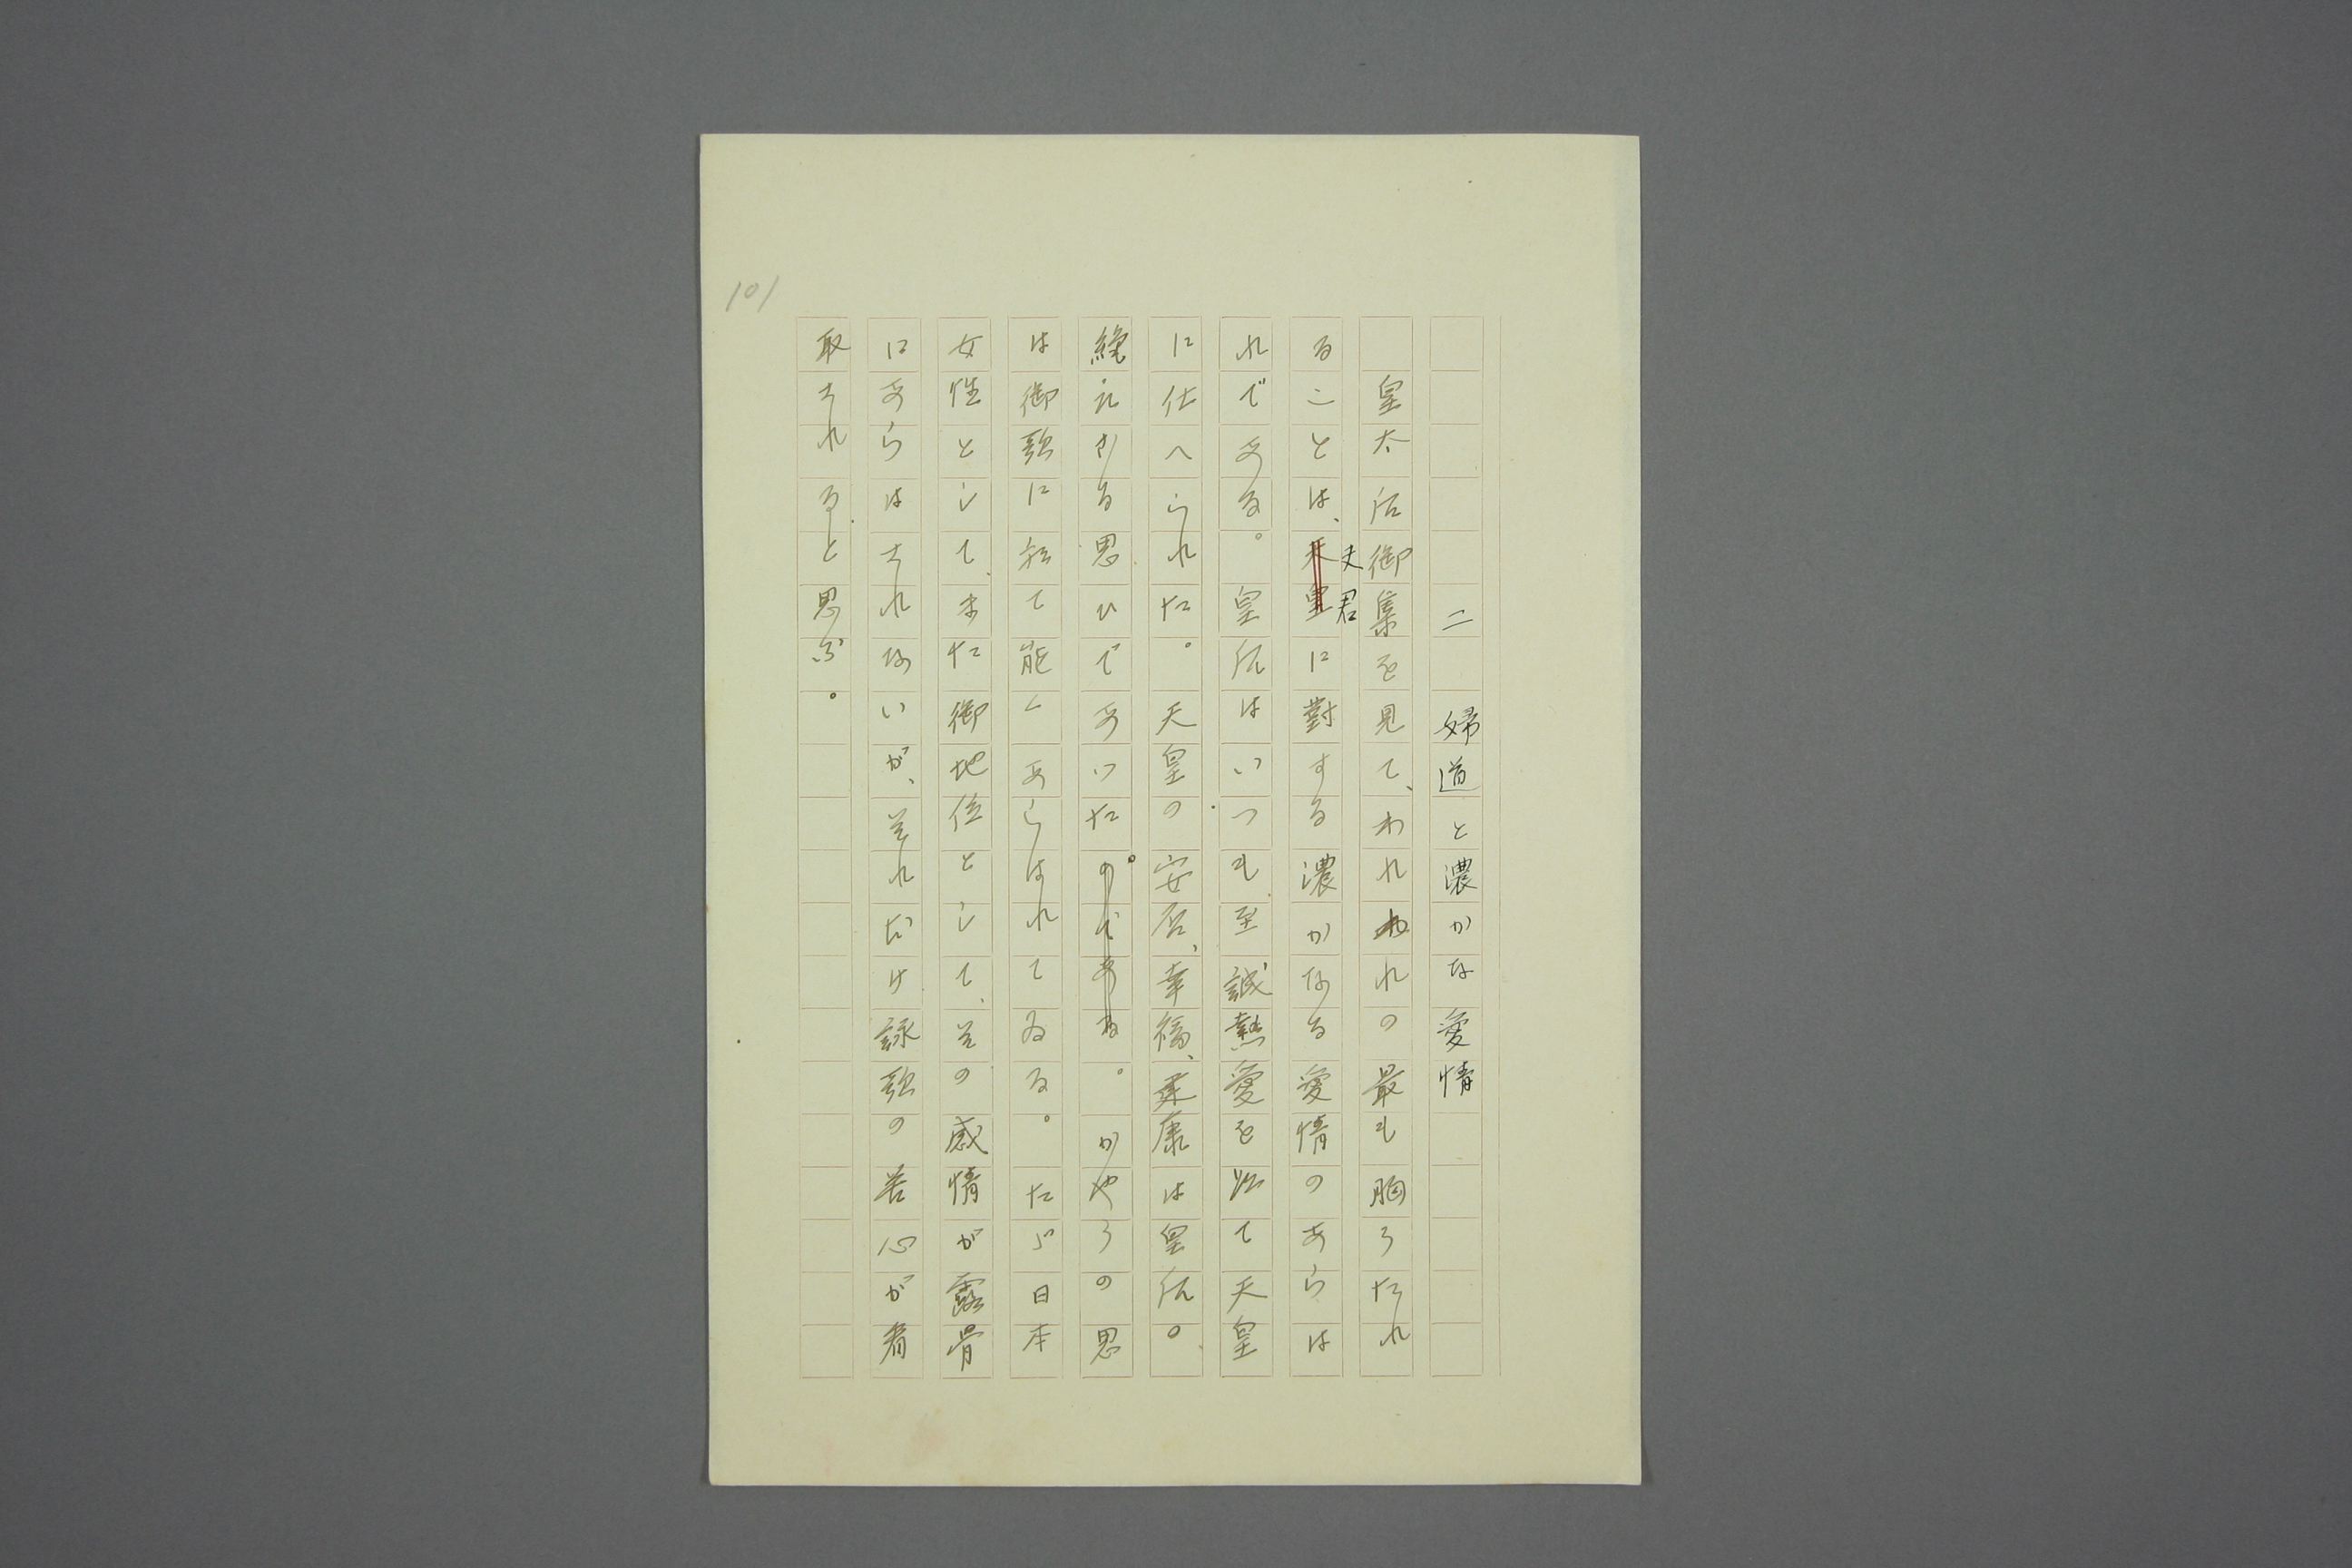 101
二　婦道と濃かな愛情
皇太后御集を見て、われわれの最も胸うたれ
ることは、夫君に對する濃かなる愛情のあらは
れである。皇后はいつも至誠熱愛を以て天皇
に仕へられた。天皇の安否、幸福、健康は皇后の
絶えざる思ひであつた。かやうの思
は御歌に於て能くあらはれてゐる。たゞ日本
女性としてまた御地位として、その感情が露骨
にあらはされないが、それだけ詠歌の苦心が看
取されると思ふ。